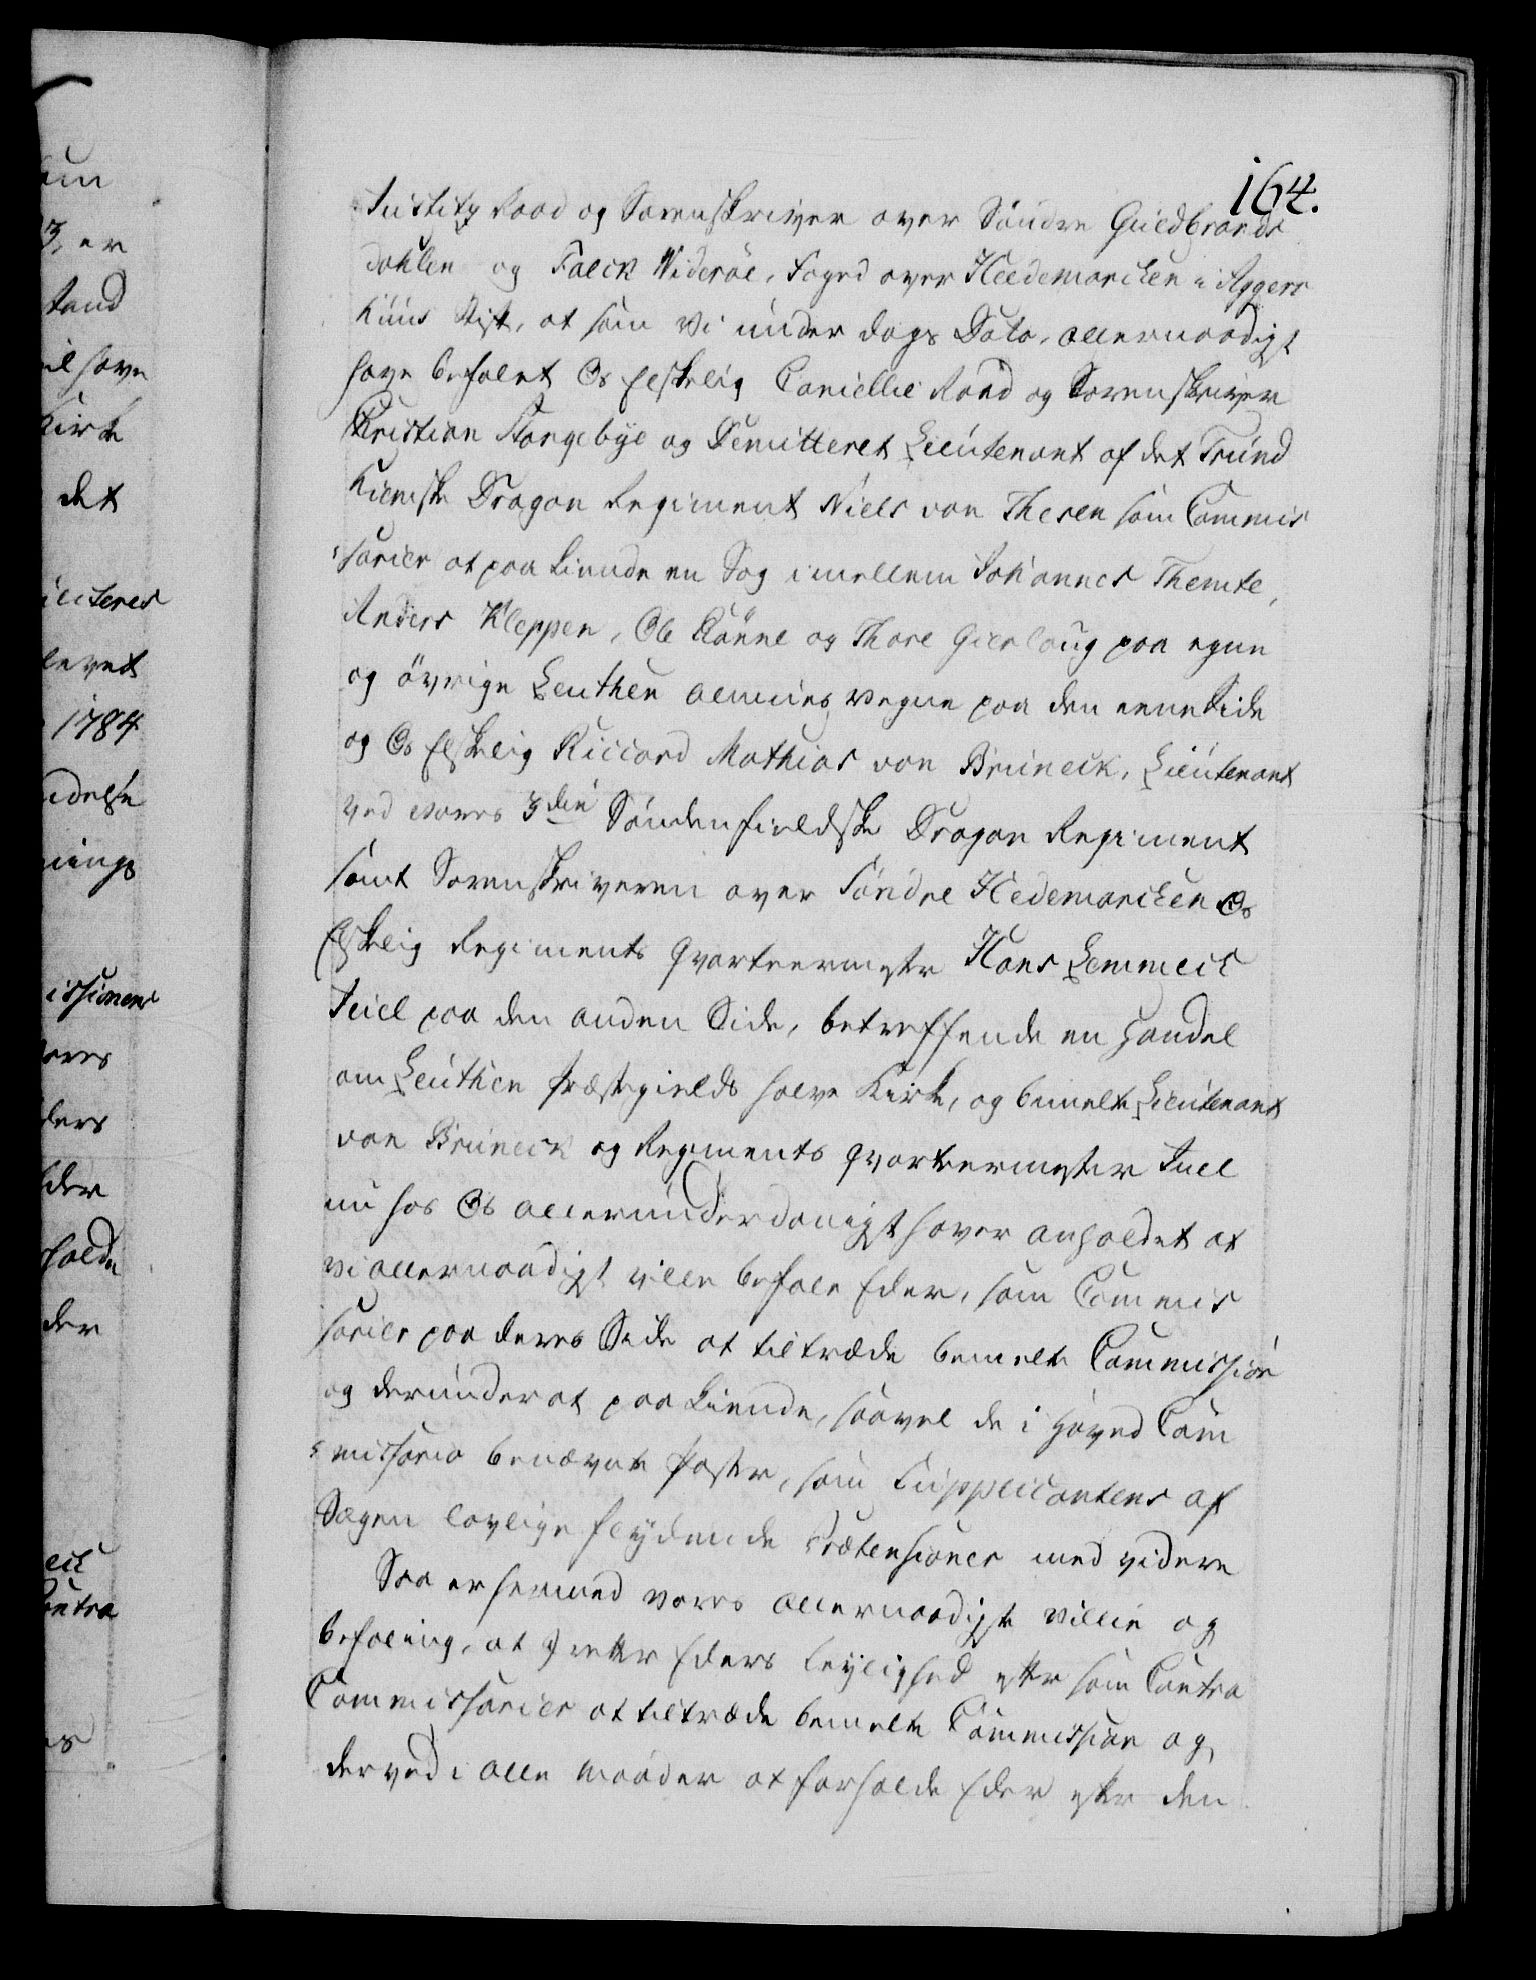 164.
Justitz Raad og Sorenskriver over Søndre Guldbrands
dahlen og Falck Widerøe, Foged over Heedemarcken i Agger
huus Stift, at som Vi under dags Dato, allernaadigst
have befalet Os Elskelig Cancellie Raad og Sorenskriver
Christian Stangebye og Demitteret Lieutenant af det Trund
hiemske Dragon Regiment Niels von Thesen som Commis
sarier at paakiende en Sag imellem Johannes Themte,
Anders Kleppen, Ole Rönne og Thore Gierloug paa egne
og övrige Leuthen Almues vegne paa den eene Side
og Os Elskelig Riccard Mathias von Bruneck, Lieutenant
ved vores 3die Søndenfieldske Dragon Regiment
samt Sorenskriveren over Søndre Hedemarcken Os
Elskelig Regiments Qvarteermester Hans Lemmeck
Juel paa den anden Side, betreffende en Handel
om Leuthen Præstegields halve Kirke, og bemelte Lieutenant
von Bruneck og Regiments Qvarteermester Juel
nu hos Os allerunderdanigst haver anholdet at
vi allernaadigst ville befale Eder, som Commis
sarier paa deres Side at tiltræde bemelte Commission
og derunder at paakiende, saavel de i Hoved Com
missorio benævnte Poster, som Supplicantens af
Sagen lovlige flydende Prætensioner med videre
Saa er hermed vores allernaadigste villie og
befaling, at I retter Eders leylighed efter som Contra
Commissarier at tiltræde bemelte Commission og
derved i alle maader at forholde Eder efter den
um
3, er
tand
il have
Kirke
det
levet
1784
udelse
nings
issionens
vores
ders
der
holde
der
eck
Contra